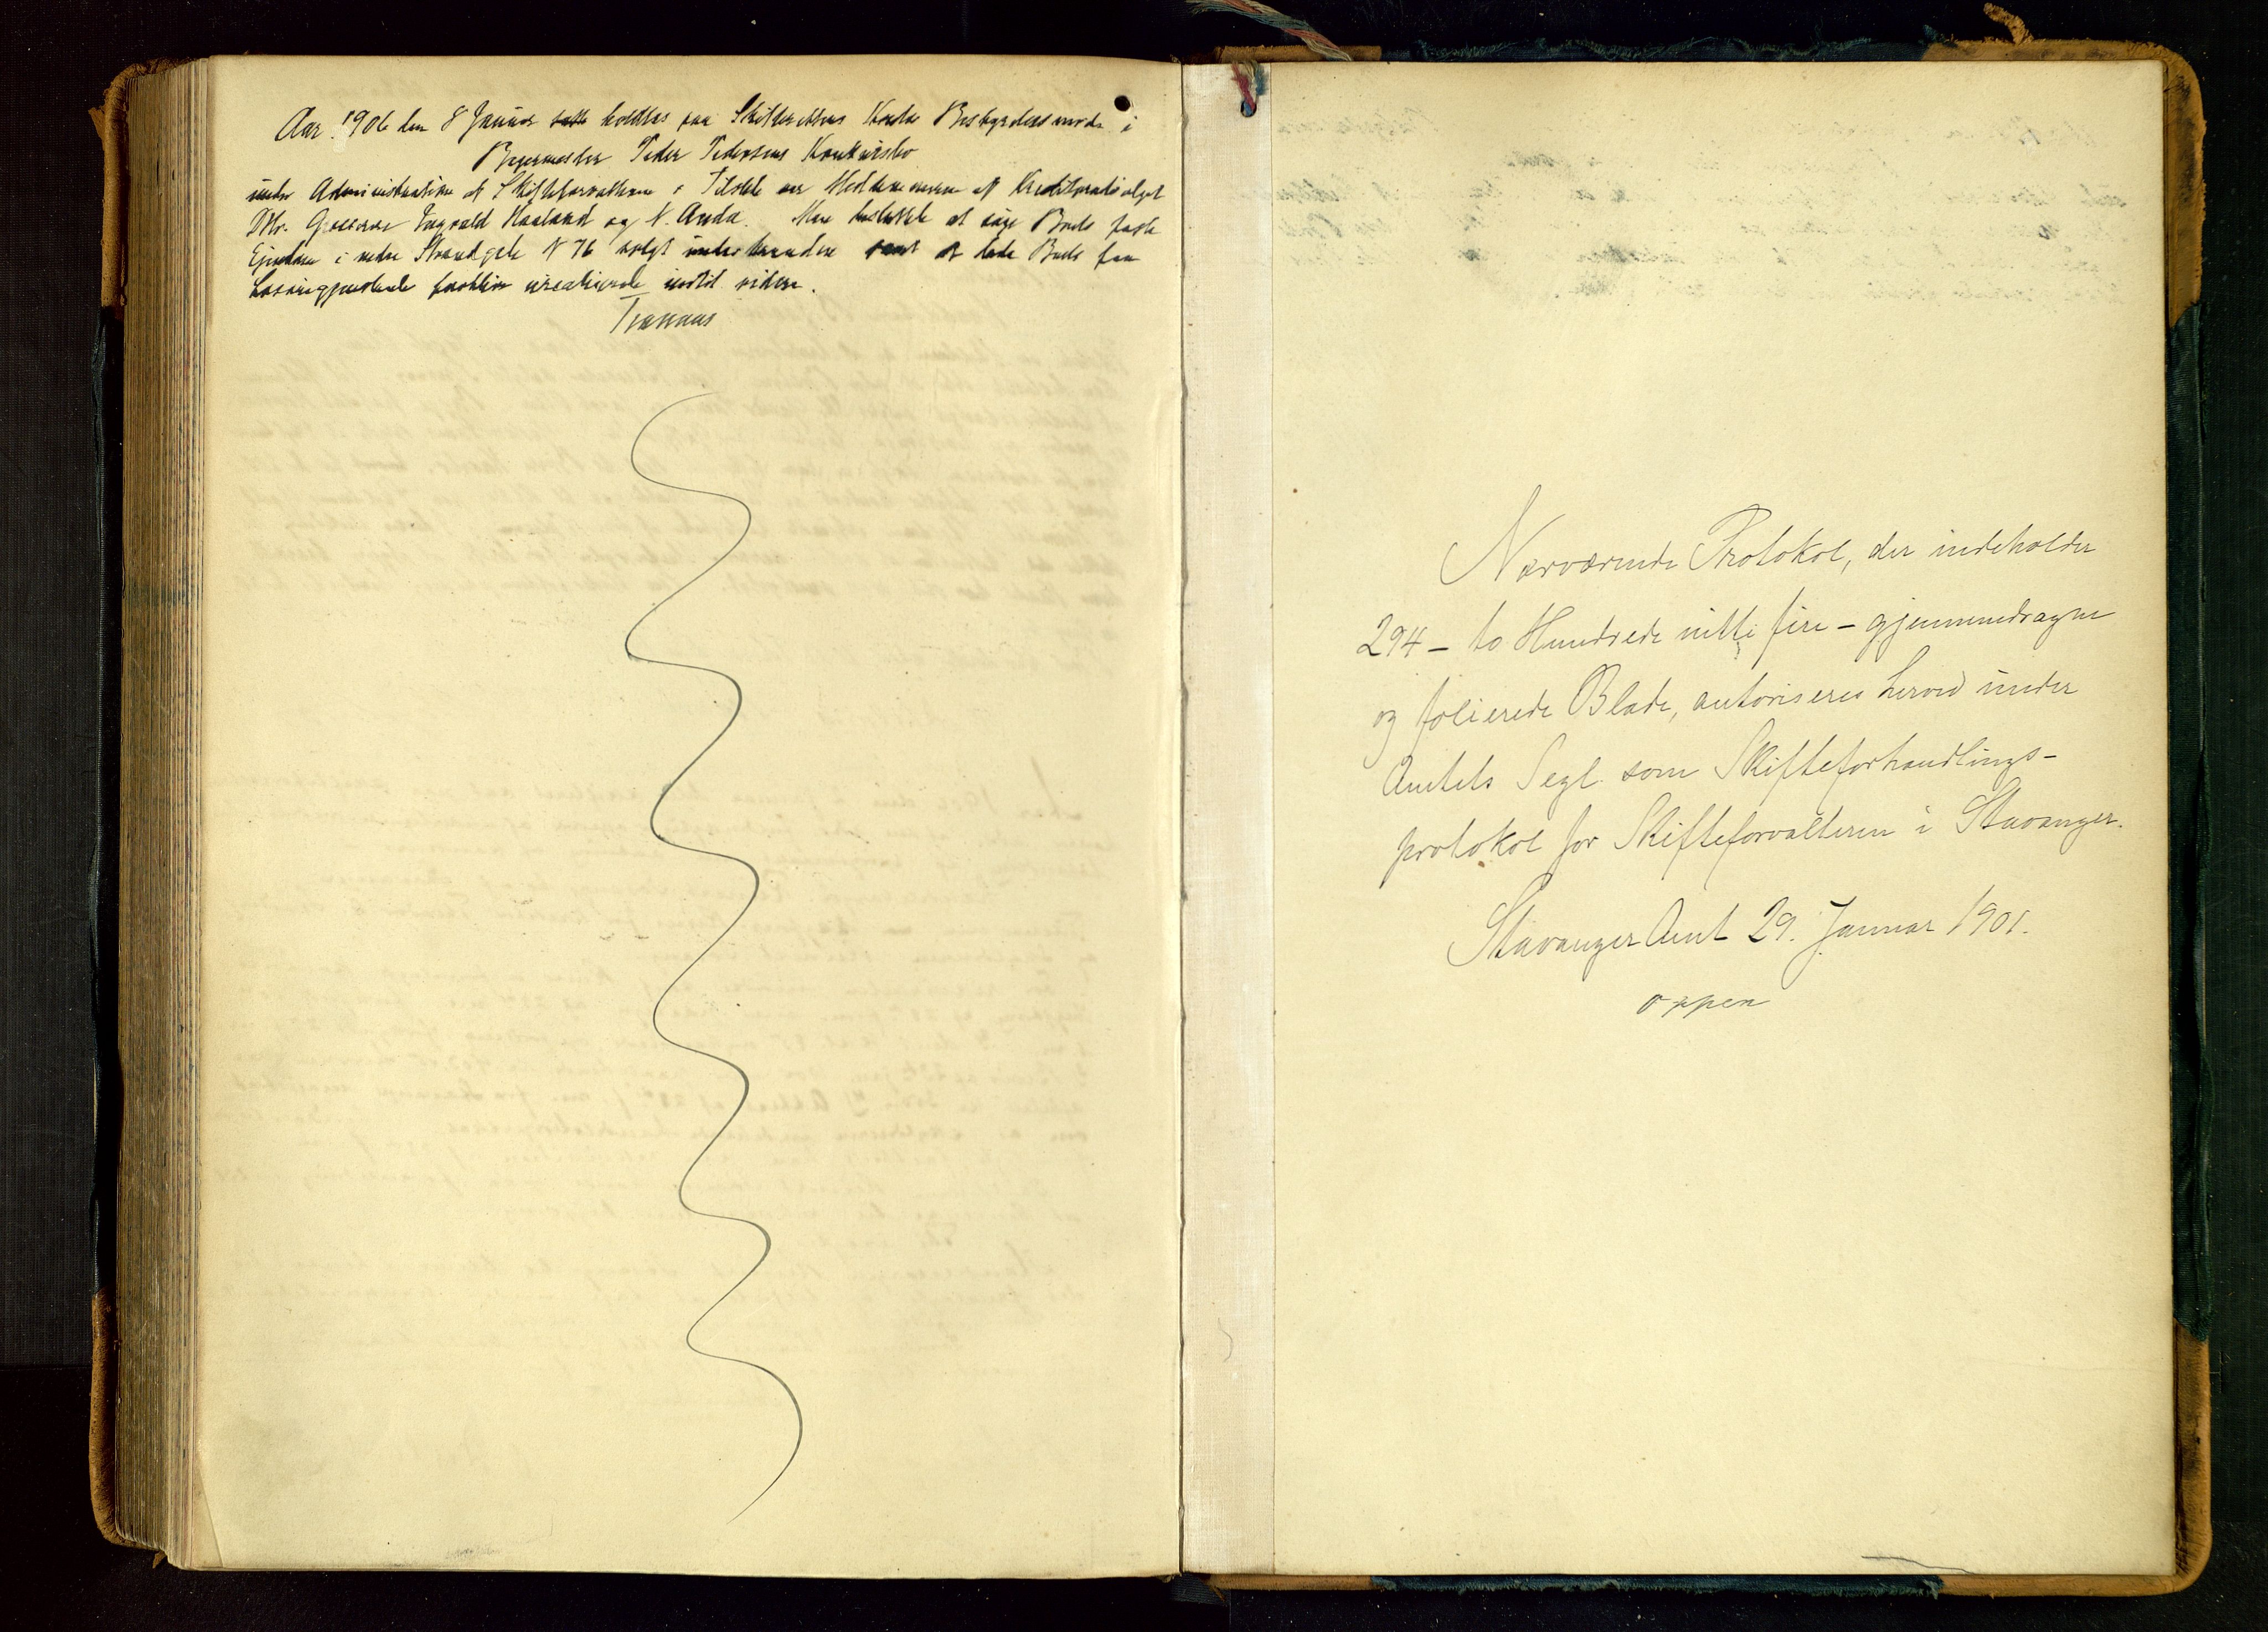 Aar 1906 den 8 Januar holdtes paa Skifterettens Kontor Bestyrelsesmøde i
Bagermester Peder Pedersens Konkursbo
under Administration af Skifteforvalteren. Tilstede var Medlemmerne af Kreditorudvalget
DHr. Grosserer Ingvald Haaland og N. Anda. Man besluttede at søge Boets faste
Eiendom i nedre Strandgade N 76 solgt underhaanden samt at lade Boets
Løsøregjenstande indtil videre.
Nærværende Protokol, der indeholder
294 – to Hundrede nitti fire – gjennemdragne
og folierede Blade, autoriseres herved under
Amtets Segl som Skifteforhandlings-
protokol for Skifteforvalteren i Stavanger.
Stavanger Amt 29. Januar 1901.
Oppen